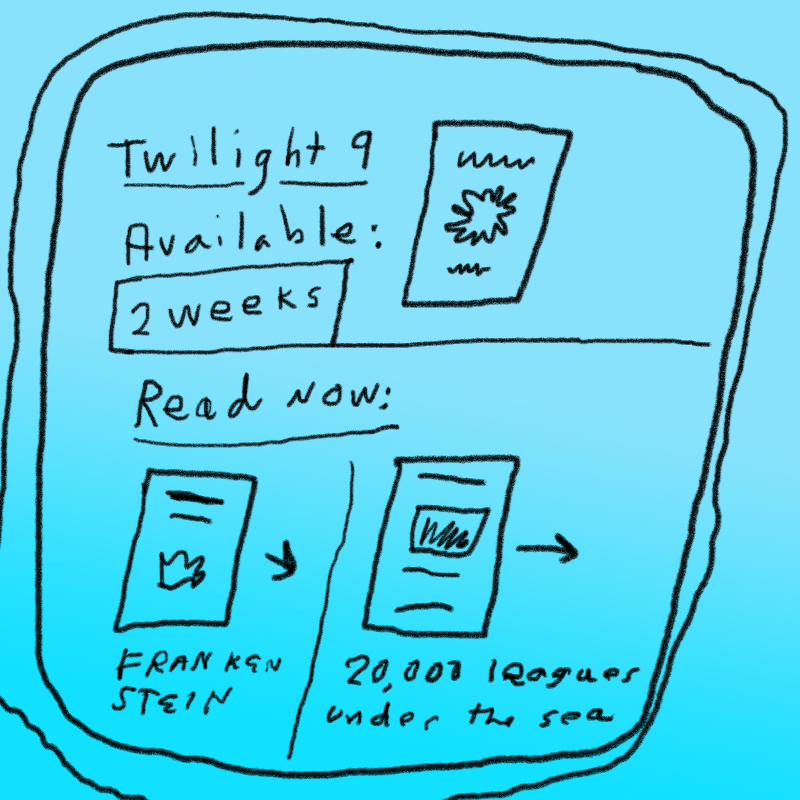 Twilight 9
Available:
2 weeks
Read now:
FRANKEN
STEIN
20,000 leagues
under the sea